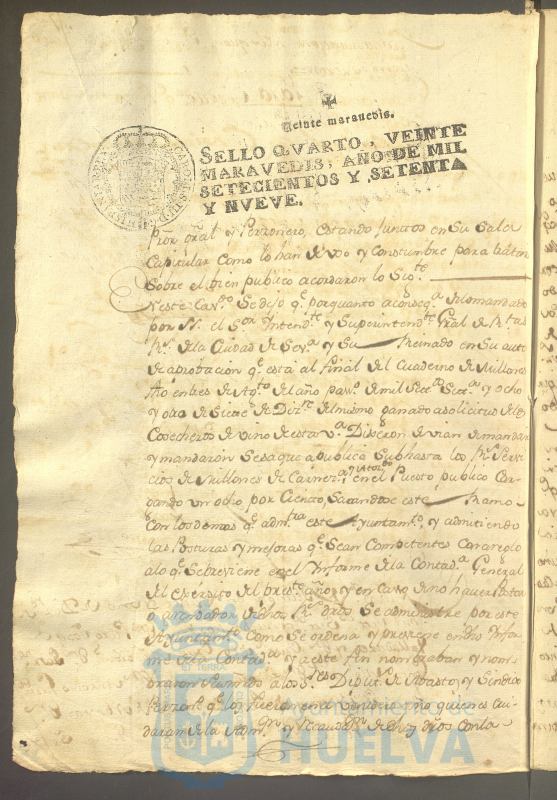 Veinte maravedis.
SELLO QVARTO, VEINTE
MARAVEDIS, AÑO DE MIL
SETECIENTOS Y SETENTA
Y NVEVE.
Pror Gral y Perzonero, estando Juntos en Su Sala
Capitular como lo han de vso y Constumbre para tratar
Sobre el bien publico acordaron lo Sigte
Neste Cavdo Se dijo qe porquanto a consequa de lo mandado
por el Sor Intendte y Superintendte Gral de Rtas
Rs de la Ciudad de Seva y Su Reinado en Su auto
de aprobacion qe está al final del Cuaderno de Millones
en tres de Agto del año pasdo de mil Setts Setta y ocho
y otro de Siete de Dizre del mismo ganado a Solicitud de los
Cosecheros de vino de esta Va Dijeron devian de mandar
y mandaron Se Saque a publica Subhasta los Rs Servi
cios de Millones de Carnes en el Puesto publico Car
gando un ocho por Ciento, Sacandose este Ramo
Con los demas qe admtra este Ayuntamto y admitiendo
las Posturas y mejoras qe Sean Competentes Con arreglo
a lo qe Se previene en el Ynforme de la Contada General
del exercito del preste año y en caso de no haver Postor
o arrendador dichos Rs dros Se administre por este
Ayuntamto como Se ordena y previene en dho Ynfor
me de la Contada y a este fin nombraban y nom
braron a los Sres Diputs de Abasto y Sindico
Perzonero qe lo fueren en el venidero año quienes cui
daran de la Admon y recaudon de dhos dros Conta
HUELVA